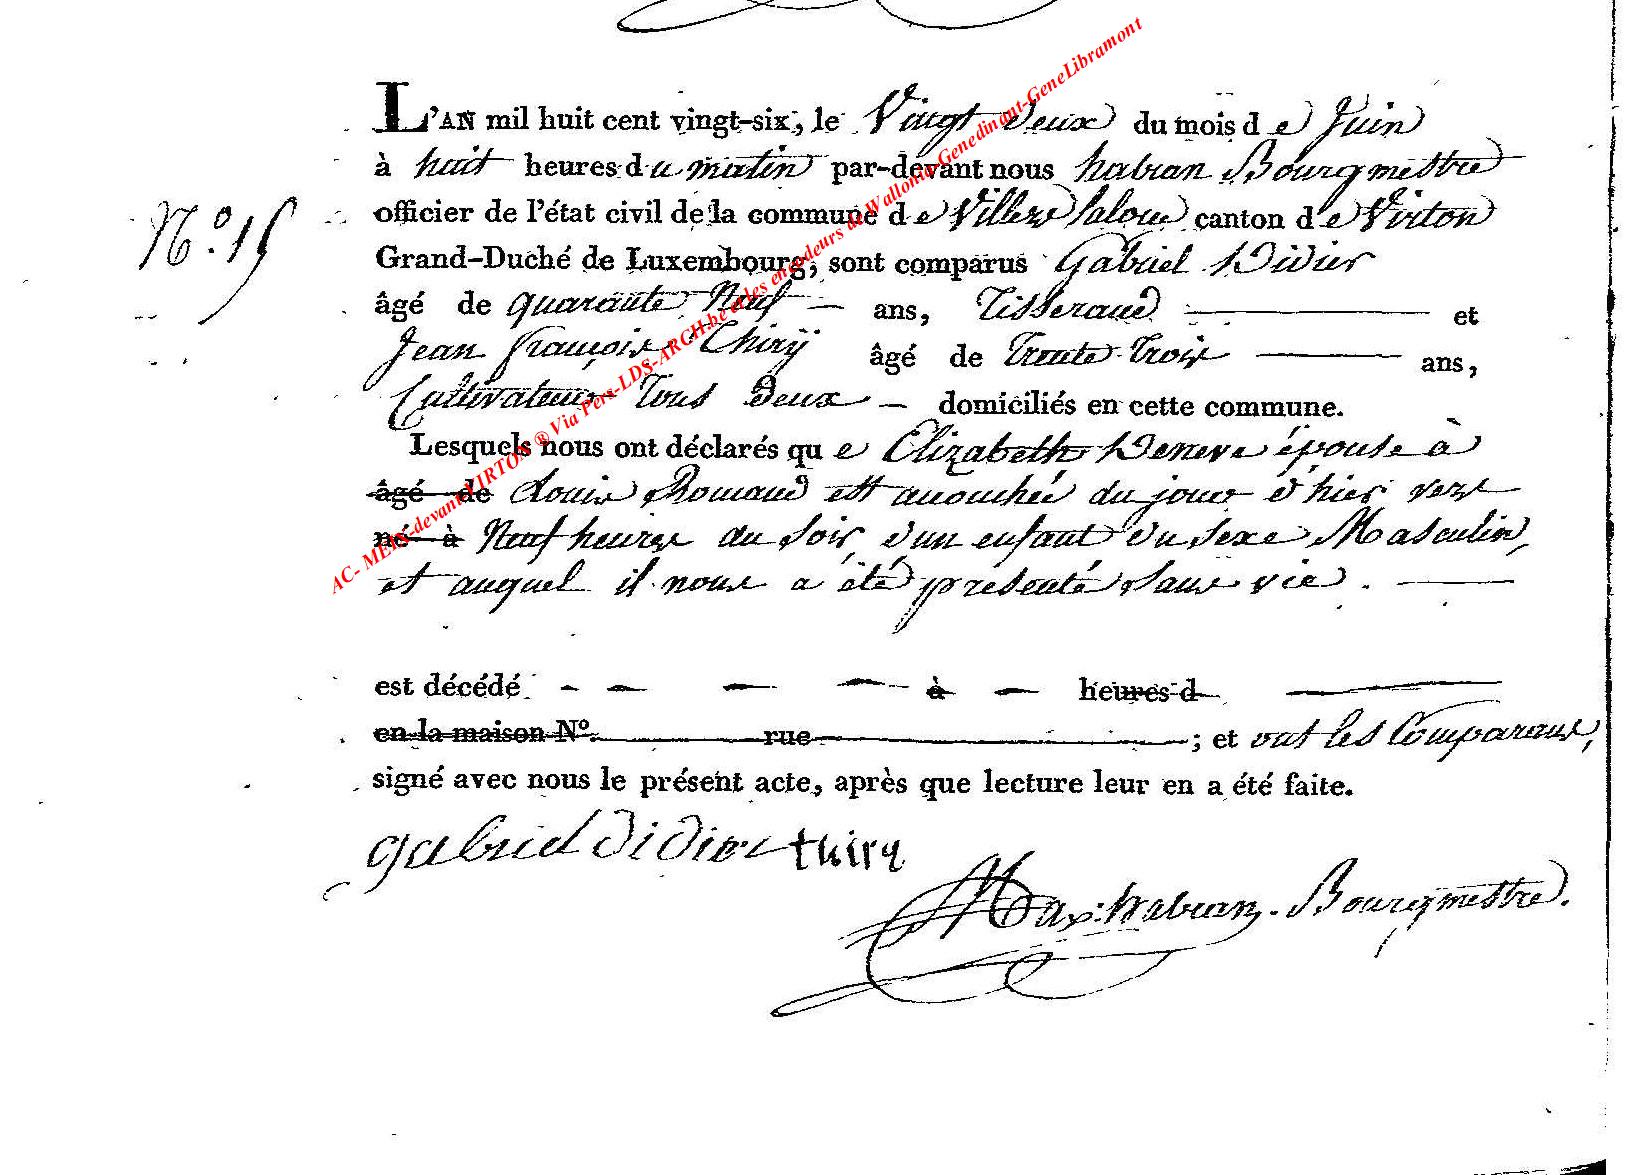 L'AN mil huit cent vingt-six, le Vingt Deux du mois de Juin
à huit heures du matin par-devant nous habran Bourgmestre
N.o 15 officier de l'état civil de la commune de Villers la loue canton de Virton
Grand-Duché de Luxembourg, sont comparus Gabriel Didier
âgé de quarante Neuf ans, Tisserand et
Jean françois Thiry âgé de Trente Trois ans,
Cultivateur Tous Deux domiciliés en cette commune.
Lesquels nous ont déclarés que Elizabeth Deneve épouse à
âgé de Louis Romand est accouchée du jour d'hier vers
né à Neuf heures du soir, d'un enfant du sexe Masculin,
et auquel il nous a été présenté sans vie.
est décédé à heures d
en la maison No. rue ; et ont les Comparans,
signé avec nous le présent acte, après que lecture leur en a été faite.
gabriel didier thiry
Max: habran. Bourgmestre.
AC- MEIX-devant-VIRTON ® Via Pers-LDS-ARCH.be et les encodeurs de Wallonia-Genedinant-GeneLibramont